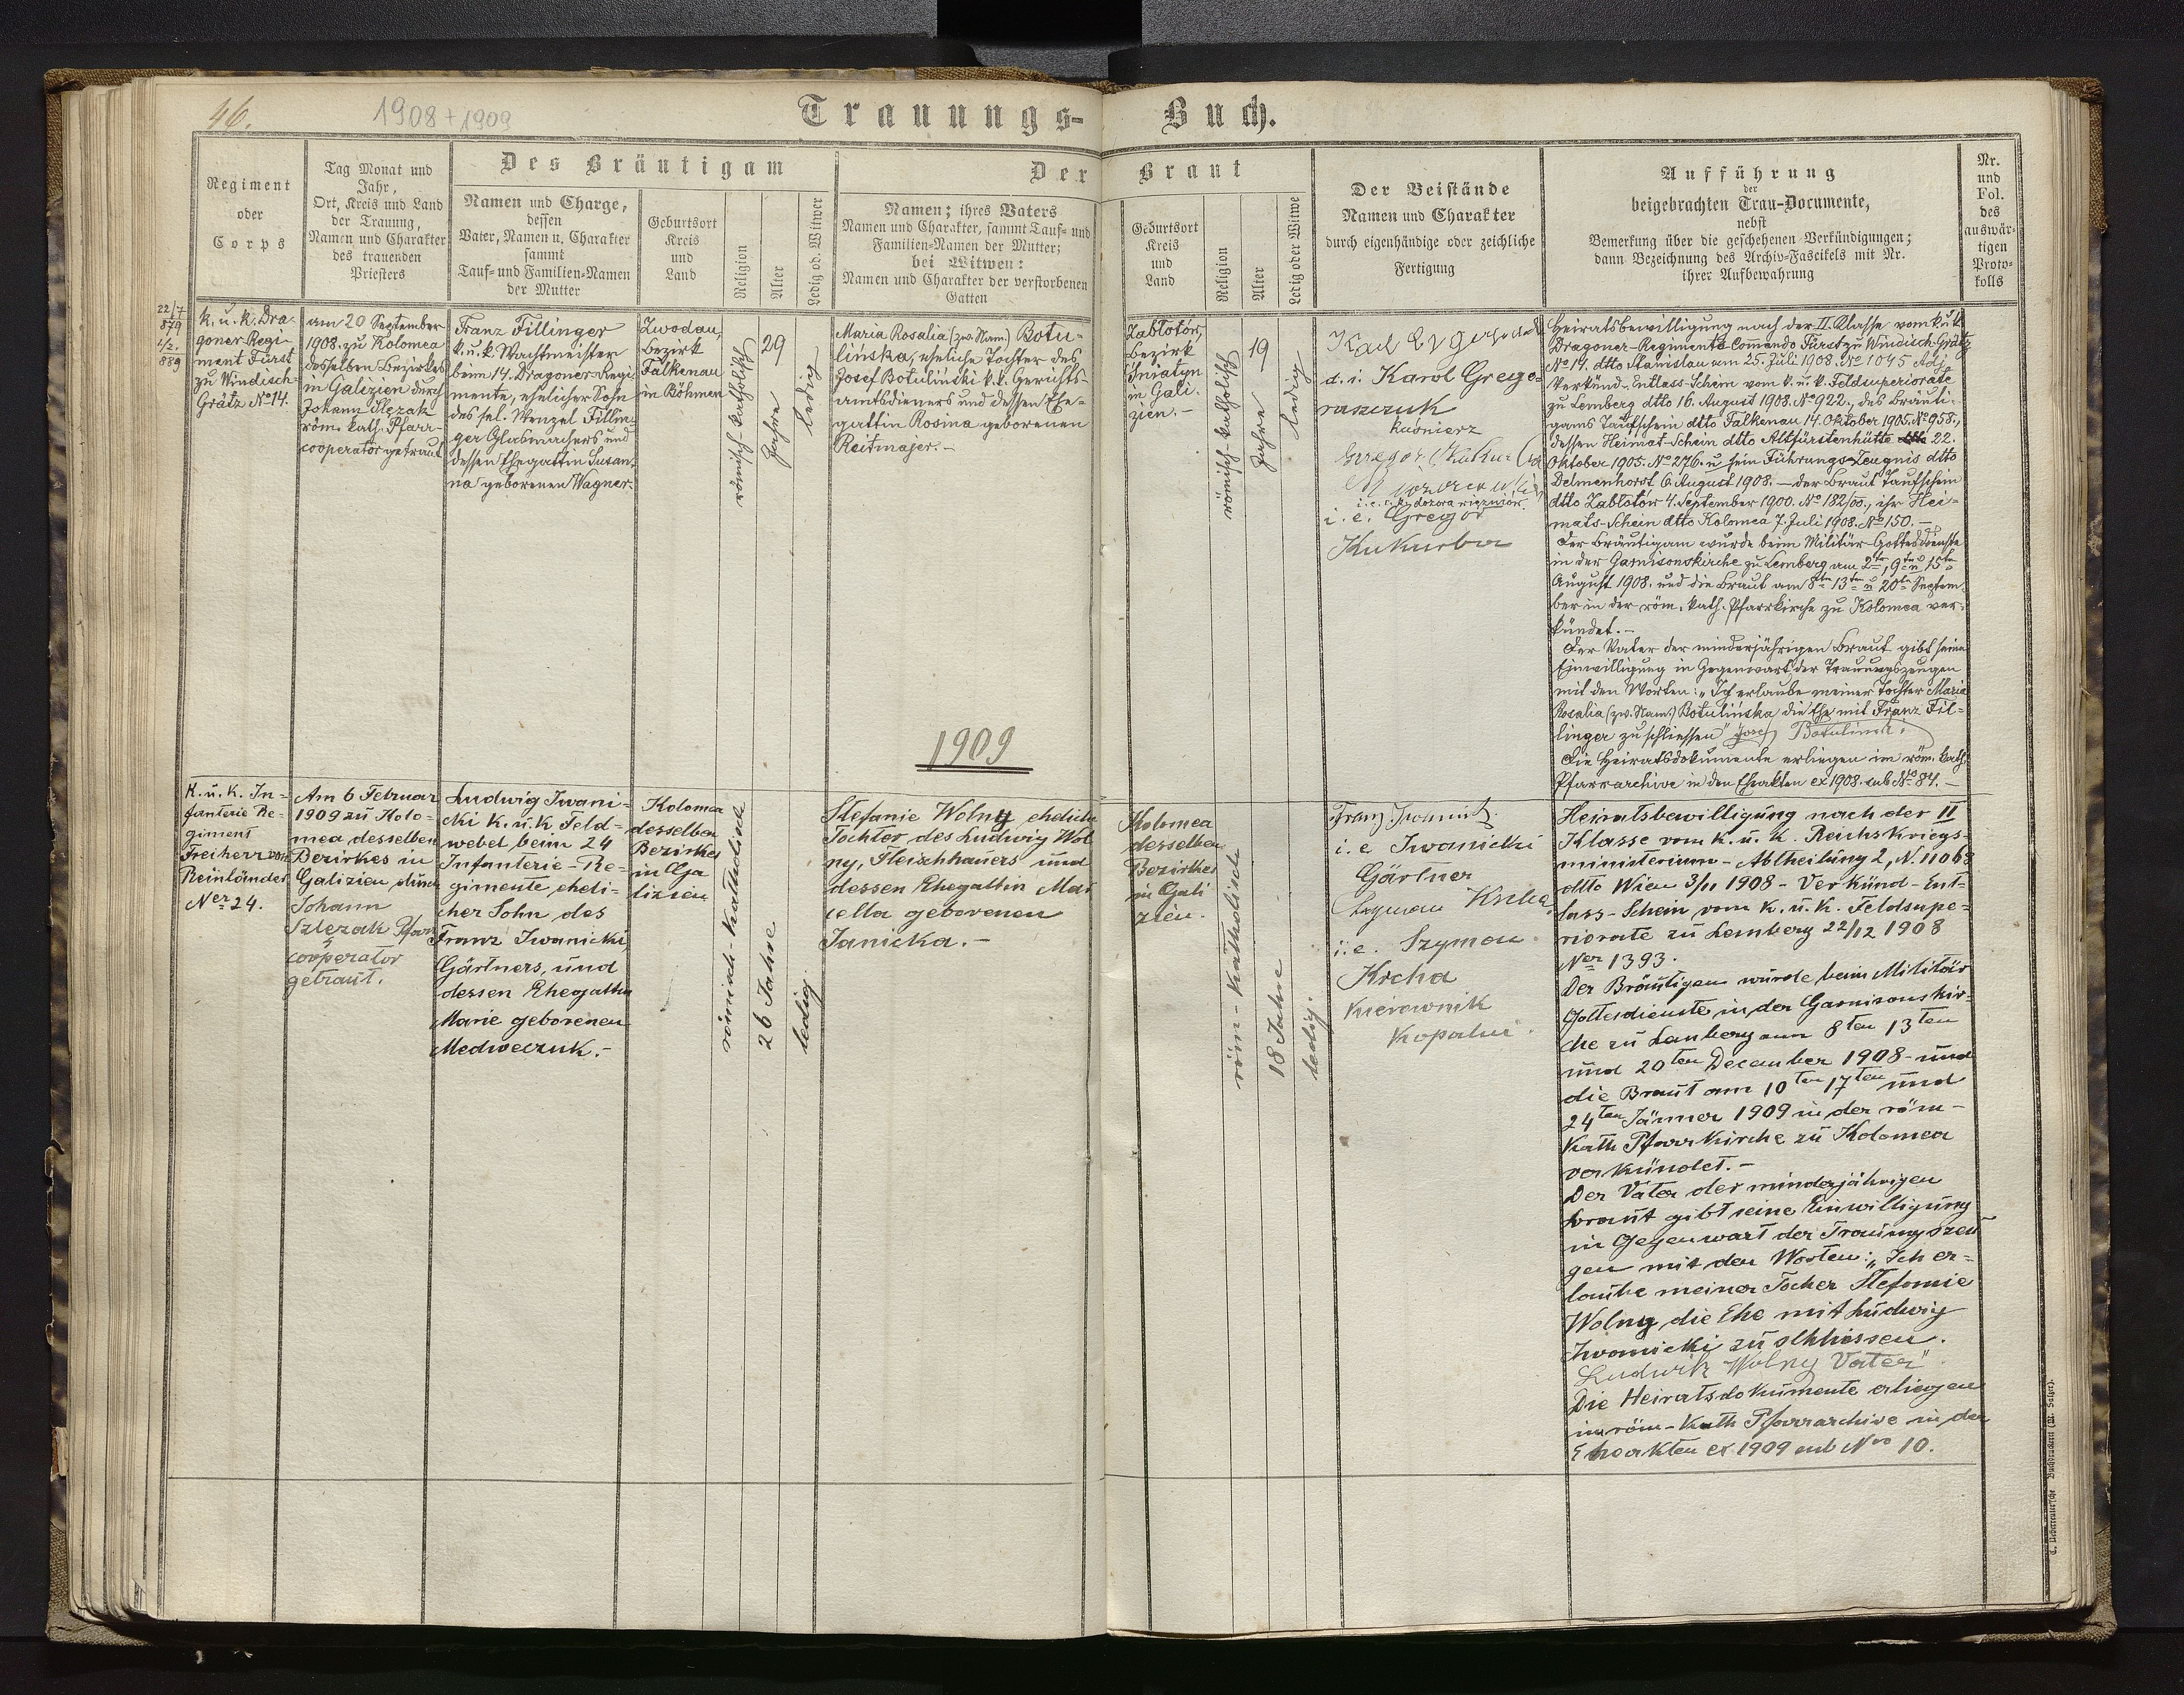 46.
1908 + 1909
Trauungs-Buch.
Regiment
oder
Corps
Tag Monat und
Jahr,
Ort, Kreis und Land
der Trauung,
Namen und Charakter
des trauenden
Priesters
Des Bräutigam
Namen und Charge,
dessen
Vater, Namen u. Charakter
sammt
Tauf- und Familien-Namen
der Mutter
Geburtsort
Kreis
und
Land
Religion
Alter
Ledig od. Witwer
Der Braut
Namen; ihres Vaters
Namen und Charakter, sammt Tauf- und
Familien-Namen der Mutter;
bei Witwen:
Namen und Charakter der verstorbenen
Gatten
Geburtsort
Kreis
und
Land
Religion
Alter
Ledig oder Witwe
Der Beistände
Namen und Charakter
durch eigenhändige oder zeichliche
Fertigung
Aufführung
der
beigebrachten Trau-Documente,
nebst
Bemerkung über die geschehenen Verkündigungen;
dann Bezeichnung des Archiv-Fascikels mit Nr.
ihrer Aufbewahrung
Nr.
und
Fol.
des
auswär-
tigen
Proto-
kolls
22/7
879
1/2.
889
k. u. k. Dra-
goner-Regi-
ment Fürst
zu Windisch-
Grätz No 14.
am 20 September
1908. zu Kolomea
desselben Bezirkes
in Galizien durch
Johann Slęzak
röm. kath. Pfarr-
cooperator getraut
Franz Fillinger
k. u. k. Wachtmeister
beim 14. Dragoner-Regi-
mente, ehelicher Sohn
des sel. Wenzel Fillin-
ger Glasmachers und
dessen Ehegattin Susan-
na geborenen Wagner.
Zwodau,
Bezirk
Falkenau
in Böhmen
römisch katholisch
29
Jahre
ledig
Maria Rosalia (zw. Nam.) Botu-
lińska, eheliche Tochter des
Josef Botuliński k. k. Gerichts-
amtsdieners und dessen Ehe-
gattin Rosina geborenen
Reitmajer. -
Zabłotów,
Bezirk
Śniatyn
in Gali-
zien. -
römisch katholisch
19
Jahre
ledig
d. i. Karol Grego-
raszczuk
kuśnierz
Gregor Kukurba
i. e. dozorca więźniów
i. e. Gregor
Kukurba
Heiratsbewilligung nach der II. Klasse vom k. u. k.
Dragoner-Regiments-Comando Fürst zu Windisch-Grätz
No 14. dtto Stanislau am 25. Juli 1908. No 1045 Adj.
Verkünd-Entlass-Schein vom k. u. k. Feldsuperiorate
zu Lemberg dtto 16. August 1908. No 922., des Bräuti-
gams Taufschein dtto Falkenau 14. Oktober 1905. No 958.,
dessen Heimat-Schein dtto Altfürstenhütte 22.
Oktober 1905. No 276. u. sein Führungs-Zeugnis dtto
Delmenhorst 6. August 1908. - der Braut Taufschein
dtto Zabłotów 4. September 1900. No 182/00., ihr Hei-
mats-Schein dtto Kolomea 7. Juli 1908. No 150. -
Der Bräutigam wurde beim Militär-Gottesdienste
in der Garnisonskirche zu Lemberg am 2ten, 9ten u. 15ten
August 1908. und die Braut am 8ten 13ten u. 20ten Septem-
ber in der röm. kath. Pfarrkirche zu Kolomea ver-
kündet. -
Der Vater der minderjährigen Braut gibt seine
Einwilligung in Gegenwart der Trauungszeugen
mit den Worten: „Ich erlaube meiner Tochter Maria
Rosalia (zw. Nam.) Botulińska die Ehe mit Franz Fil-
linger zu schliessen" Josef Botulinski
Die Heiratsdokumente erliegen im röm. kath.
Pfarrarchive in den Eheakten ex 1908. sub No 84. -
1909
K. u. K. In-
fanterie Re-
giment
Freiherr von
Reinländer
Ner 24.
Am 6 Februar
1909 zu Kolo-
mea desselben
Bezirkes in
Galizien durch
Johann
Szlezak Pfarr
cooperator
getraut.
Ludwig Iwani-
cki K. u. K. Feld-
webel beim 24
Infanterie-Re-
gimente eheli-
cher Sohn des
Franz Iwanicki
Gärtners, und
dessen Ehegattin
Marie geborenen
Medweczuk. -
Kolomea
desselben
Bezirkes
in Ga
lizien
römisch-katholisch
26 Jahre
ledig
Stefanie Wolny eheliche
Tochter des Ludwig Wol
ny, Fleischhauers und
dessen Ehegattin Mar
cella geborenen
Janicka. -
Kolomea
desselben
Bezirkes
in Gali
zien.
röm-katholische
18 Jahre
ledig.
Franz Iwanicki
i. e Iwanicki
Gärtner
Szymon Krcha
i. e. Szymon
Krcha
Kierownik
Kopalni.
Heiratsbewilligung nach der II
Klasse vom K. u. K. Reichskriegs-
ministerium - Abtheilung 2, N. 11068
dtto Wien 3/11 1908 - Verkünd-Ent-
lass-Schein vom K. u. K. Feldsupe-
riorate zu Lemberg 22/12 1908
Ner 1393.
Der Bräutigam wurde beim Militär
Gottesdienste in der Garnisonskir-
che zu Lemberg am 8ten 13ten
und 20ten December 1908 - und
die Braut am 10ten 17ten und
24ten Jänner 1909 in der röm-
kath Pfarrkirche zu Kolomea
verkündet. -
Der Vater der minderjährigen
braut gibt seine Einwilligung
in Gegenwart der Trauungszeu
gen mit den Worten: „Ich er-
laube meiner Tocher Stefanie
Wolny die Ehe mit Ludwig
Iwanicki zu schliessen.
Ludwik Wolny Vater"
Die Heiratsdokumente erliegen
im röm-Kath Pfarrarchive in den
Eheakten ex 1909 sub Nro 10.